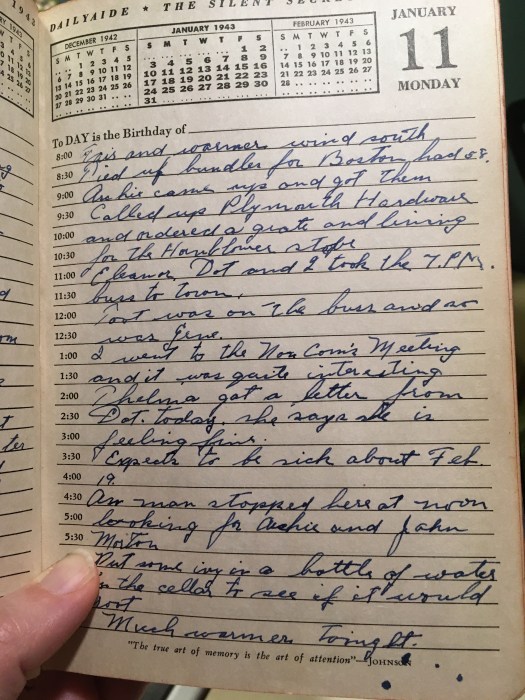 1942
DAILYAIDE ★ THE SILENT SECRE
DECEMBER 1942
S M T W T F S
. . 1 2 3 4 5
6 7 8 9 10 11 12
13 14 15 16 17 18 19
20 21 22 23 24 25 26
27 28 29 30 31 . .
JANUARY 1943
S M T W T F S
. . . . . 1 2
3 4 5 6 7 8 9
10 11 12 13 14 15 16
17 18 19 20 21 22 23
24 25 26 27 28 29 30
31 . . . . . .
FEBRUARY 1943
S M T W T F S
. 1 2 3 4 5 6
7 8 9 10 11 12 13
14 15 16 17 18 19 20
21 22 23 24 25 26 27
28 . . . . . .
JANUARY
11
MONDAY
To DAY is the Birthday of
8:00 Fair and warmer wind south
8:30 Tied up bundles for Boston, had 58.
9:00 Archie came up and got them
9:30 Called up Plymouth Hardware
10:00 and ordered a grate and lining
10:30 for the Hornblower stove
11:00 Eleanor, Dot and I took the 7 P.M.
11:30 buss to town.
12:00 Toot was on the buss and so
12:30 was Gene.
1:00 I went to the Non Com's Meeting
1:30 and it was quite interesting
2:00 Thelma got a letter from
2:30 Dot. today, she says she is
3:00 feeling fine.
3:30 Expects to be sick about Feb.
4:00 19.
4:30 An man stopped here at noon
5:00 looking for Archie and John
5:30 Morton
Put some ivy in a bottle of water
in the cellar to see if it would
root
Much warmer tonight.
"The true art of memory is the art of attention"—JOHNSON